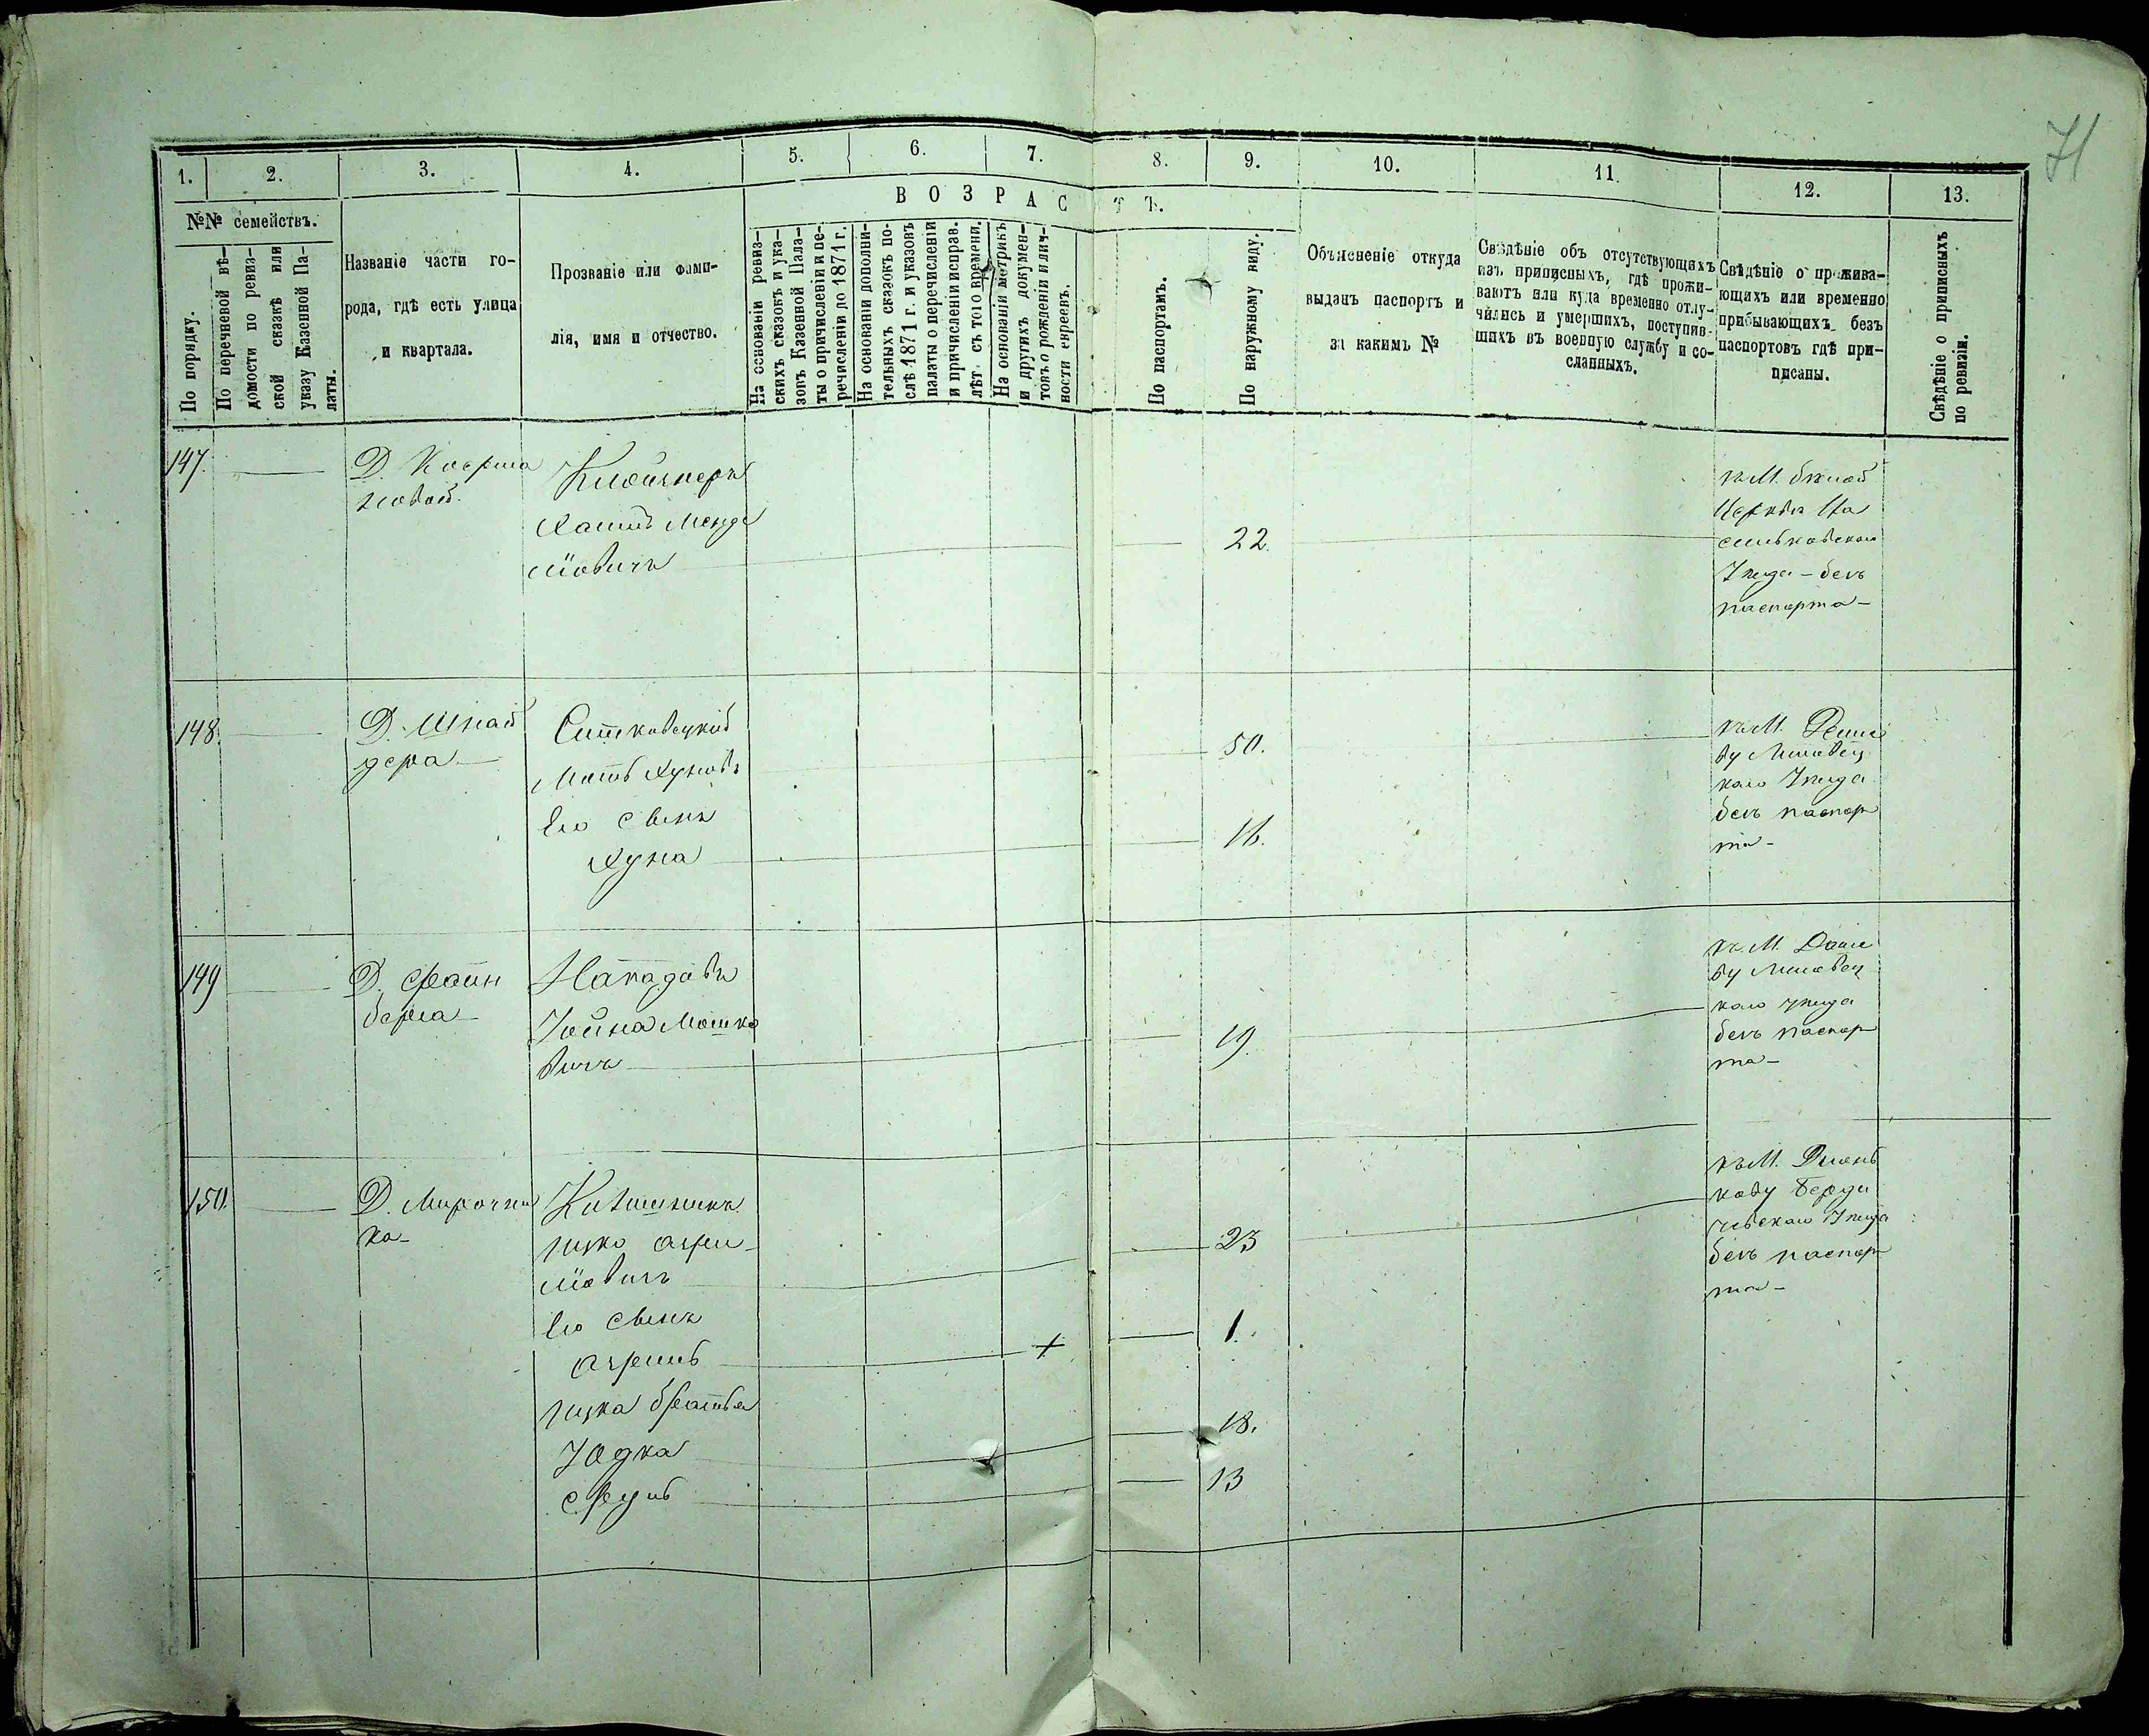 71
1. 2. 3. 4. 5. 6. 7. 8. 9. 10. 11. 12. 13.
ВОЗРАСТЪ.
№№ семействъ.
По порядку.
По перечневой вѣ-
домости по ревиз-
ской сказкѣ или
указу Казенной Па-
латы.
Названіе части го-
рода, гдѣ есть улица
и квартала.
Прозваніе или фами-
лія, имя и отчество.
На основаніи ревиз-
скихъ сказокъ и ука-
зовъ Казенной Пала-
ты о причисленіи и пе-
речисленіи до 1871 г.
На основаніи дополни-
тельныхъ сказокъ по-
слѣ 1871 г. и указовъ
палаты о перечисленіи
и причисленіи исправ.
лѣт. съ того времени.
На основаніи метрикъ
и другихъ докумен-
товъ о рожденіи и лич-
ности евреевъ.
По паспортамъ.
По наружному виду.
Объясненіе откуда
выданъ паспортъ и
за какимъ №
Свѣдѣніе объ отсутствующихъ
изъ приписныхъ, гдѣ прожи-
ваютъ или куда временно отлу-
чились и умершихъ, поступив-
шихъ въ военную службу и со-
сланныхъ.
Свѣдѣніе о прожива-
ющихъ или временно
прибывающихъ безъ
паспортовъ гдѣ при-
писаны.
Свѣдѣніе о приписныхъ
по ревизіи.
147.
Д.
новой.
Хаимъ Менде
ліовичъ
22.
къ М. бѣлой
Церкви Ва
сильковскаго
Уѣзда - безъ
паспорта -
148.
Д. Шнай
дера
Ситковецкій
Мотъ Хуновъ
Его сынъ
Хуна
50.
16.
къ М.
ву Липовец
каго Уѣзда
безъ паспор
та -
149
Д. Файн
берга
Іойна Мошко
вичъ
19.
къ М. Даше
ву Липовец
каго уѣзда
безъ паспор
та -
150.
Д. Мирочни
ка -
ліовичъ
Его сынъ
23
1.
братья
Юдка
Сруль
18.
13
къ М.
кову Берди
чевскаго Уѣзда
безъ паспор
та -